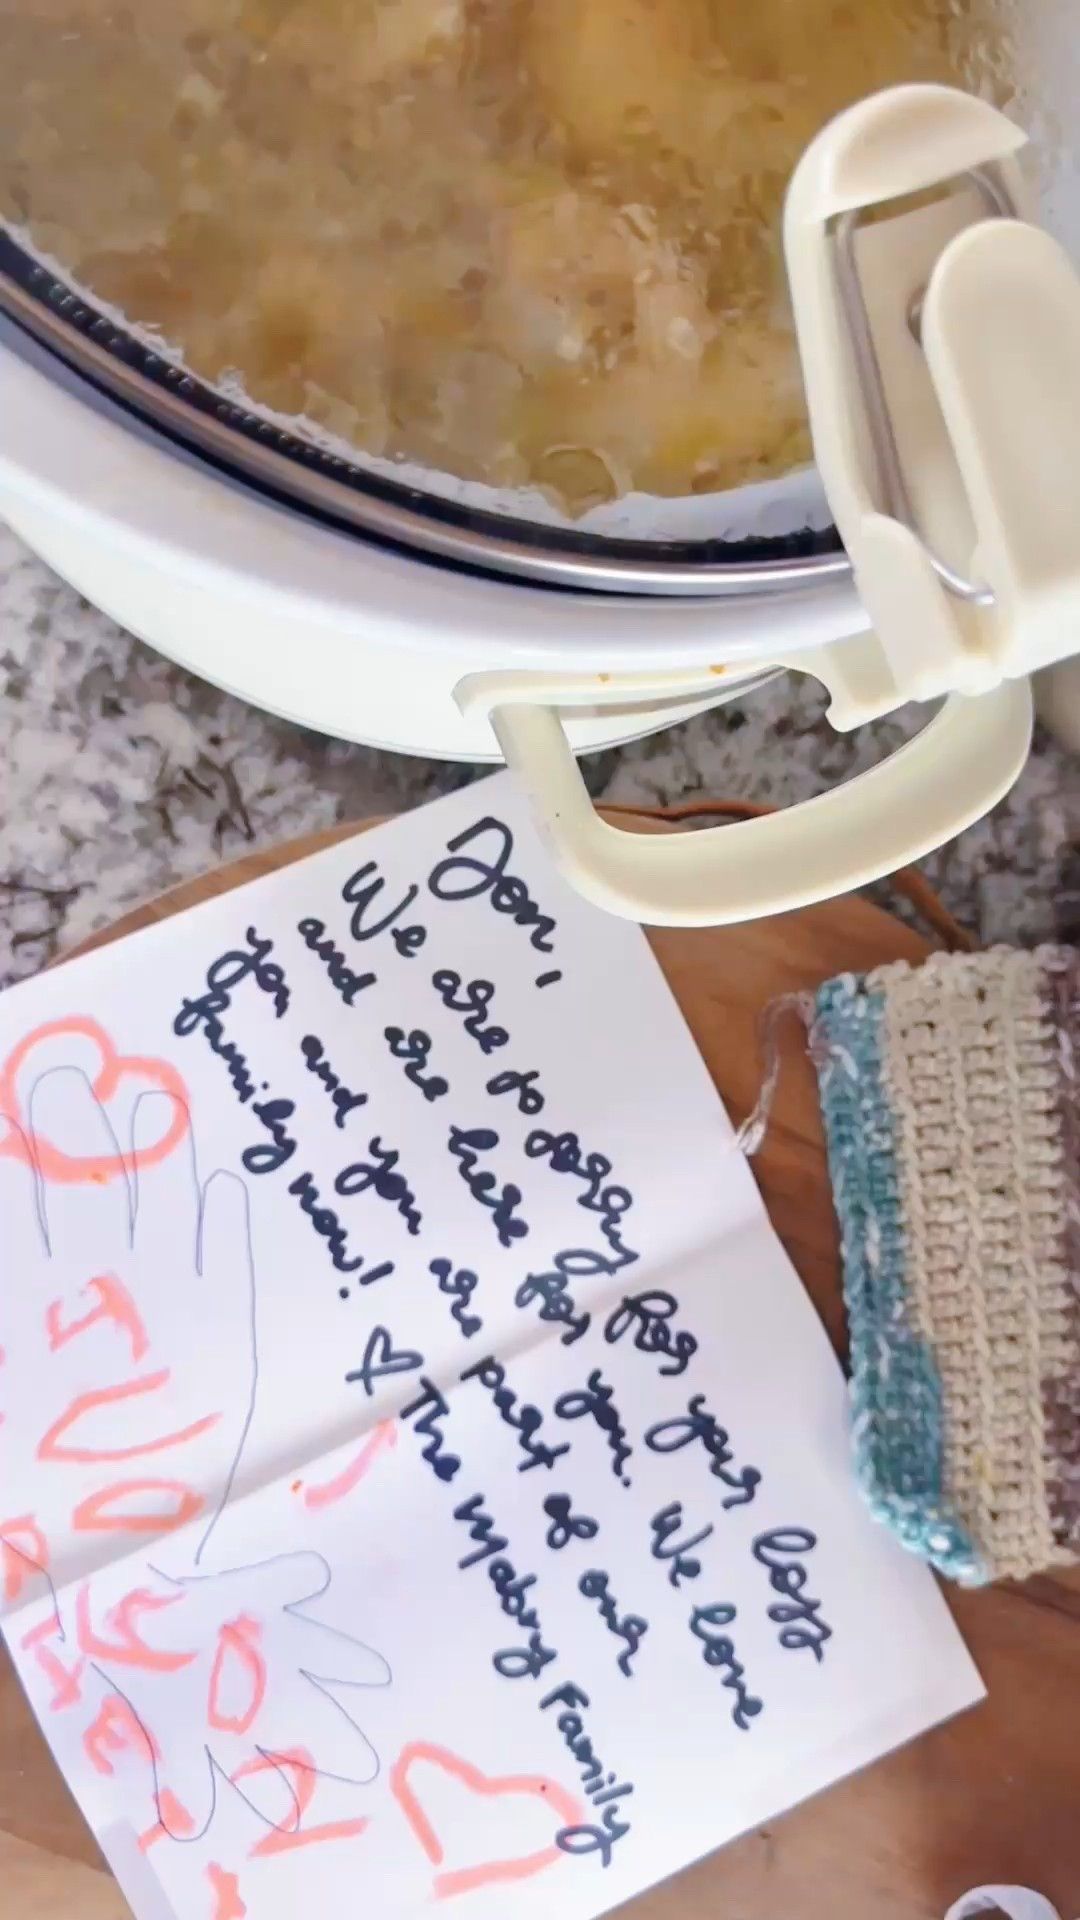 Jon,
We are so sorry for your loss
and are here for you. We love
you and you are part of our
family now!
♡ The Mabry Family
I
YOU